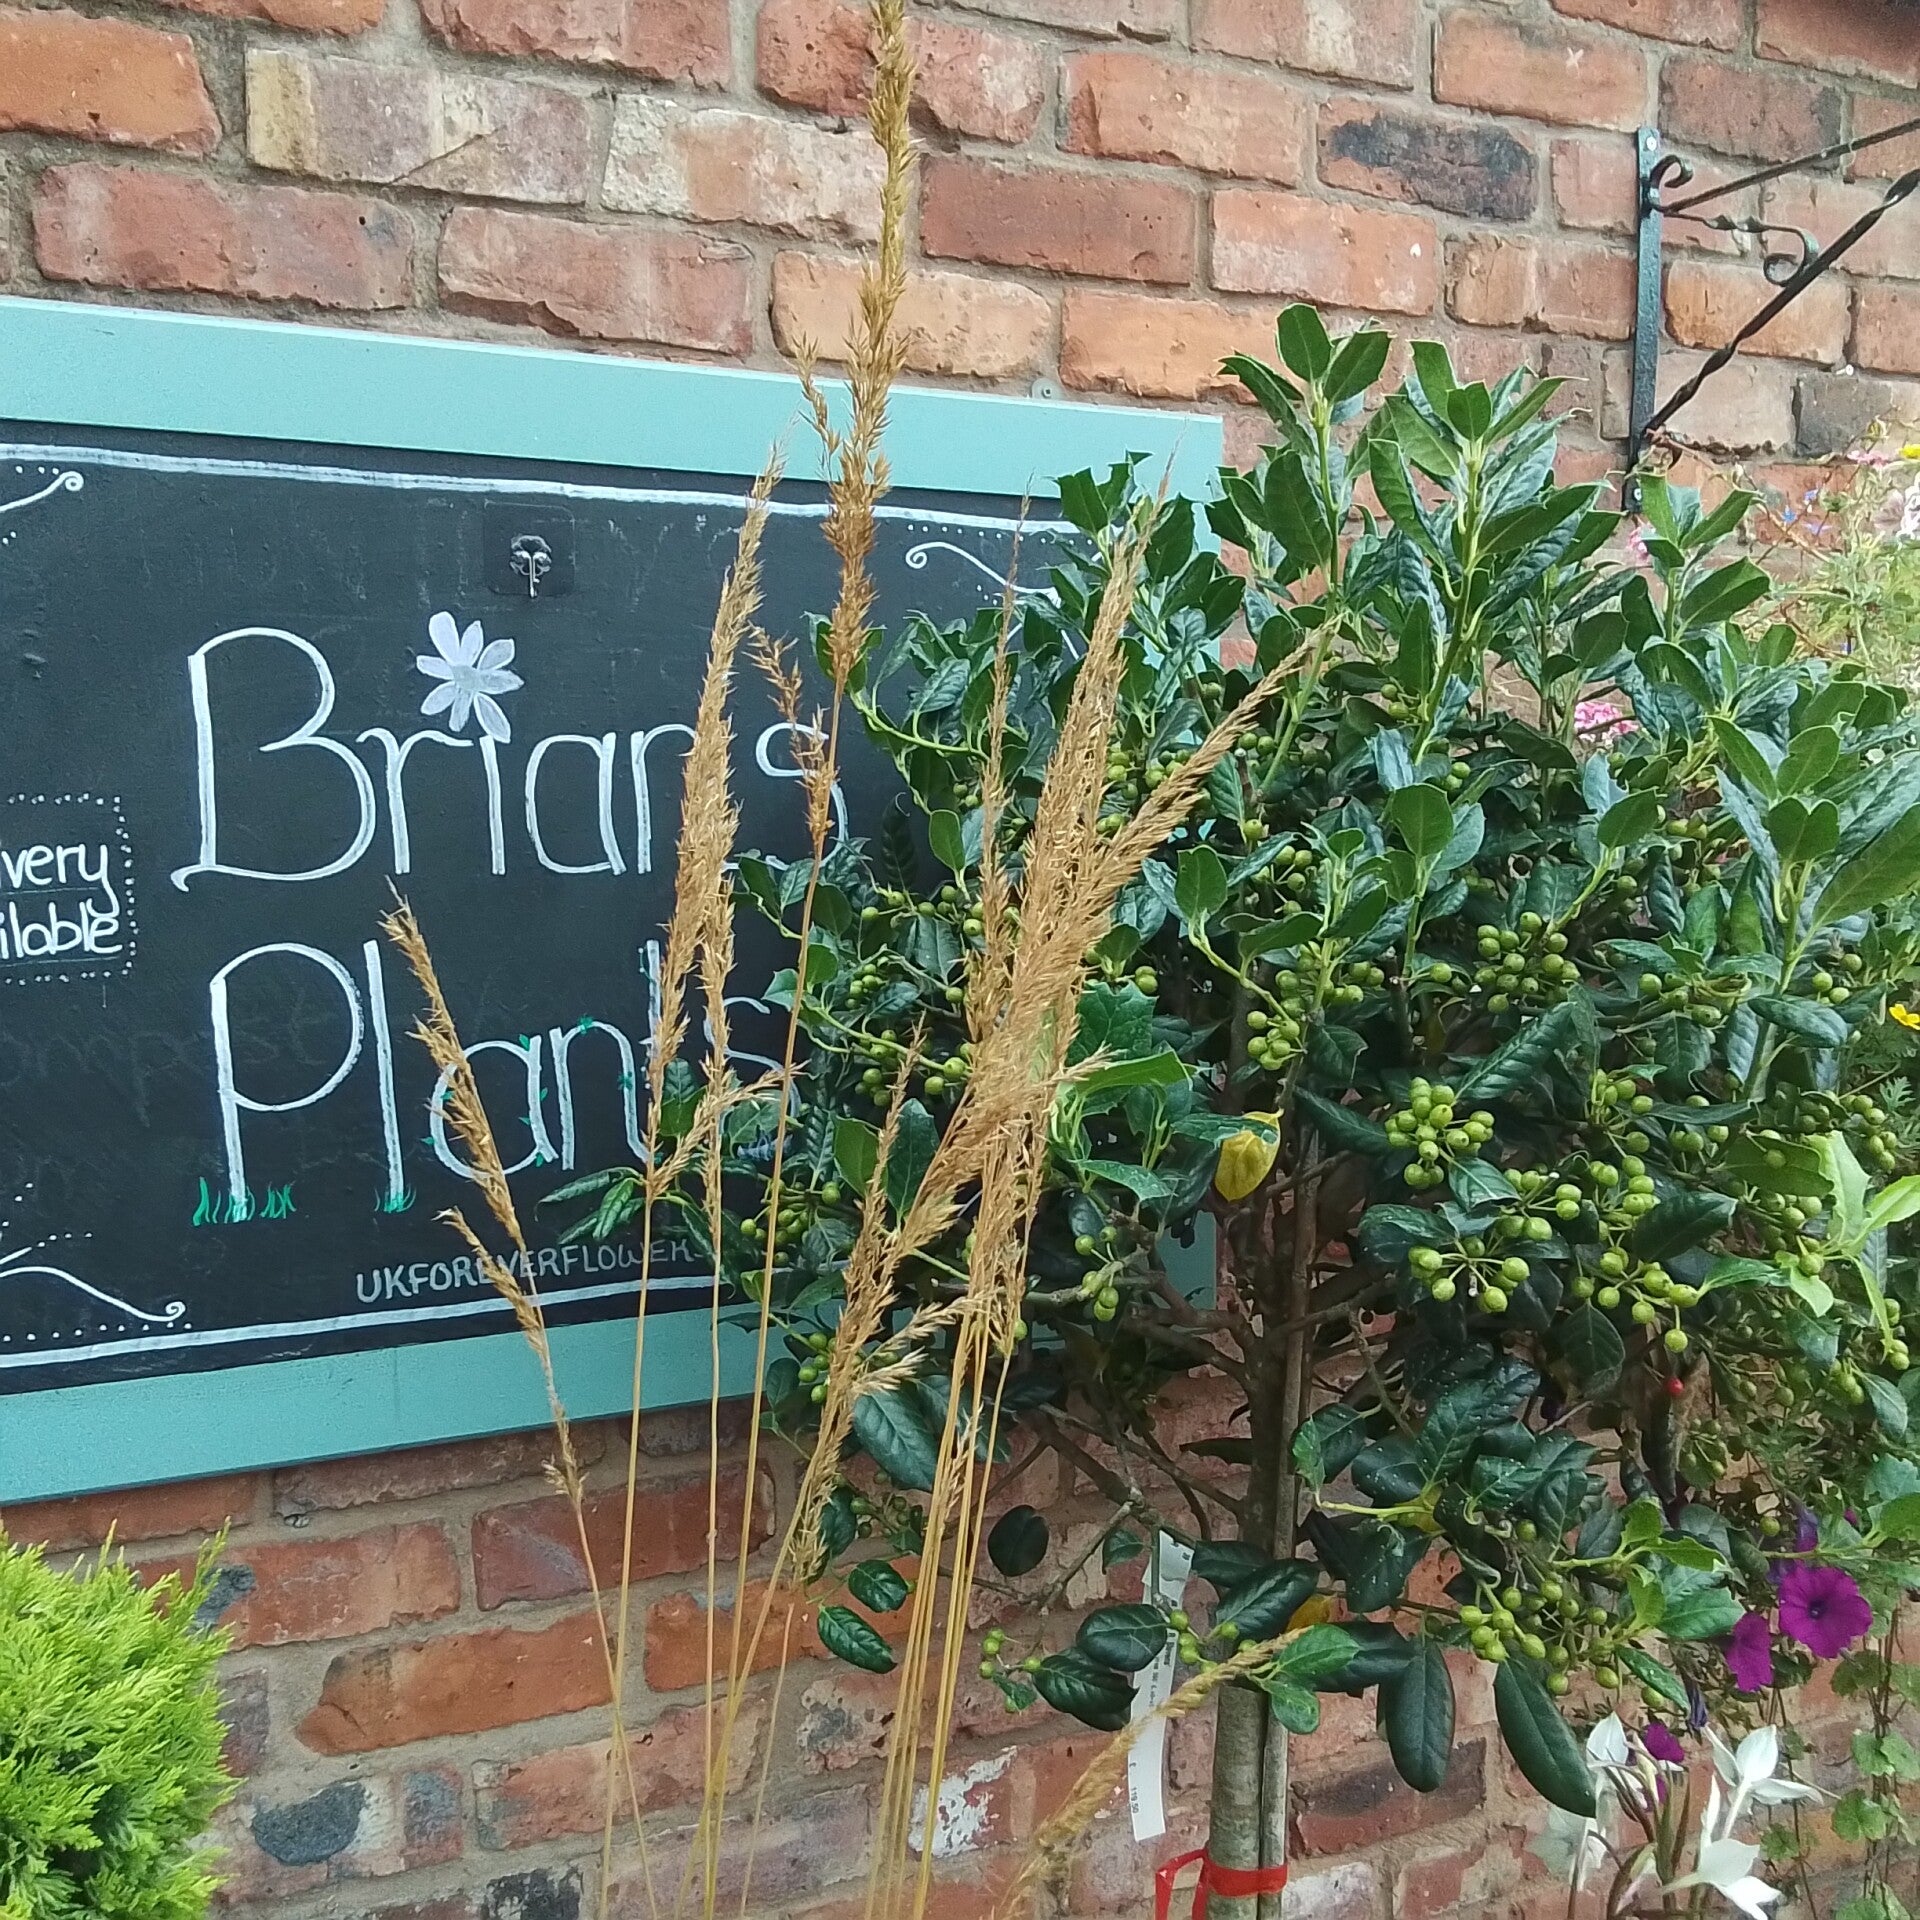 Brians
Plants
ivery
ilable
UKFOREVERFLOWERS
£ 119.50